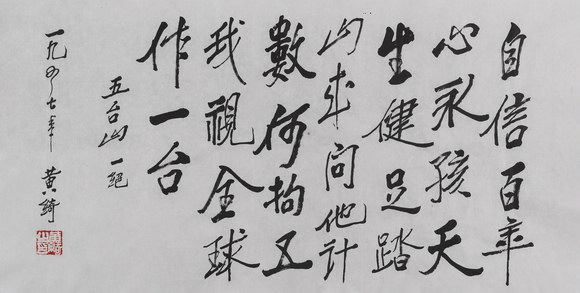 自信百年
心永孩天
生健足踏
山来问他计
數何拘五
我視全球
作一台
五台山一絕
一九八七年 黄綺